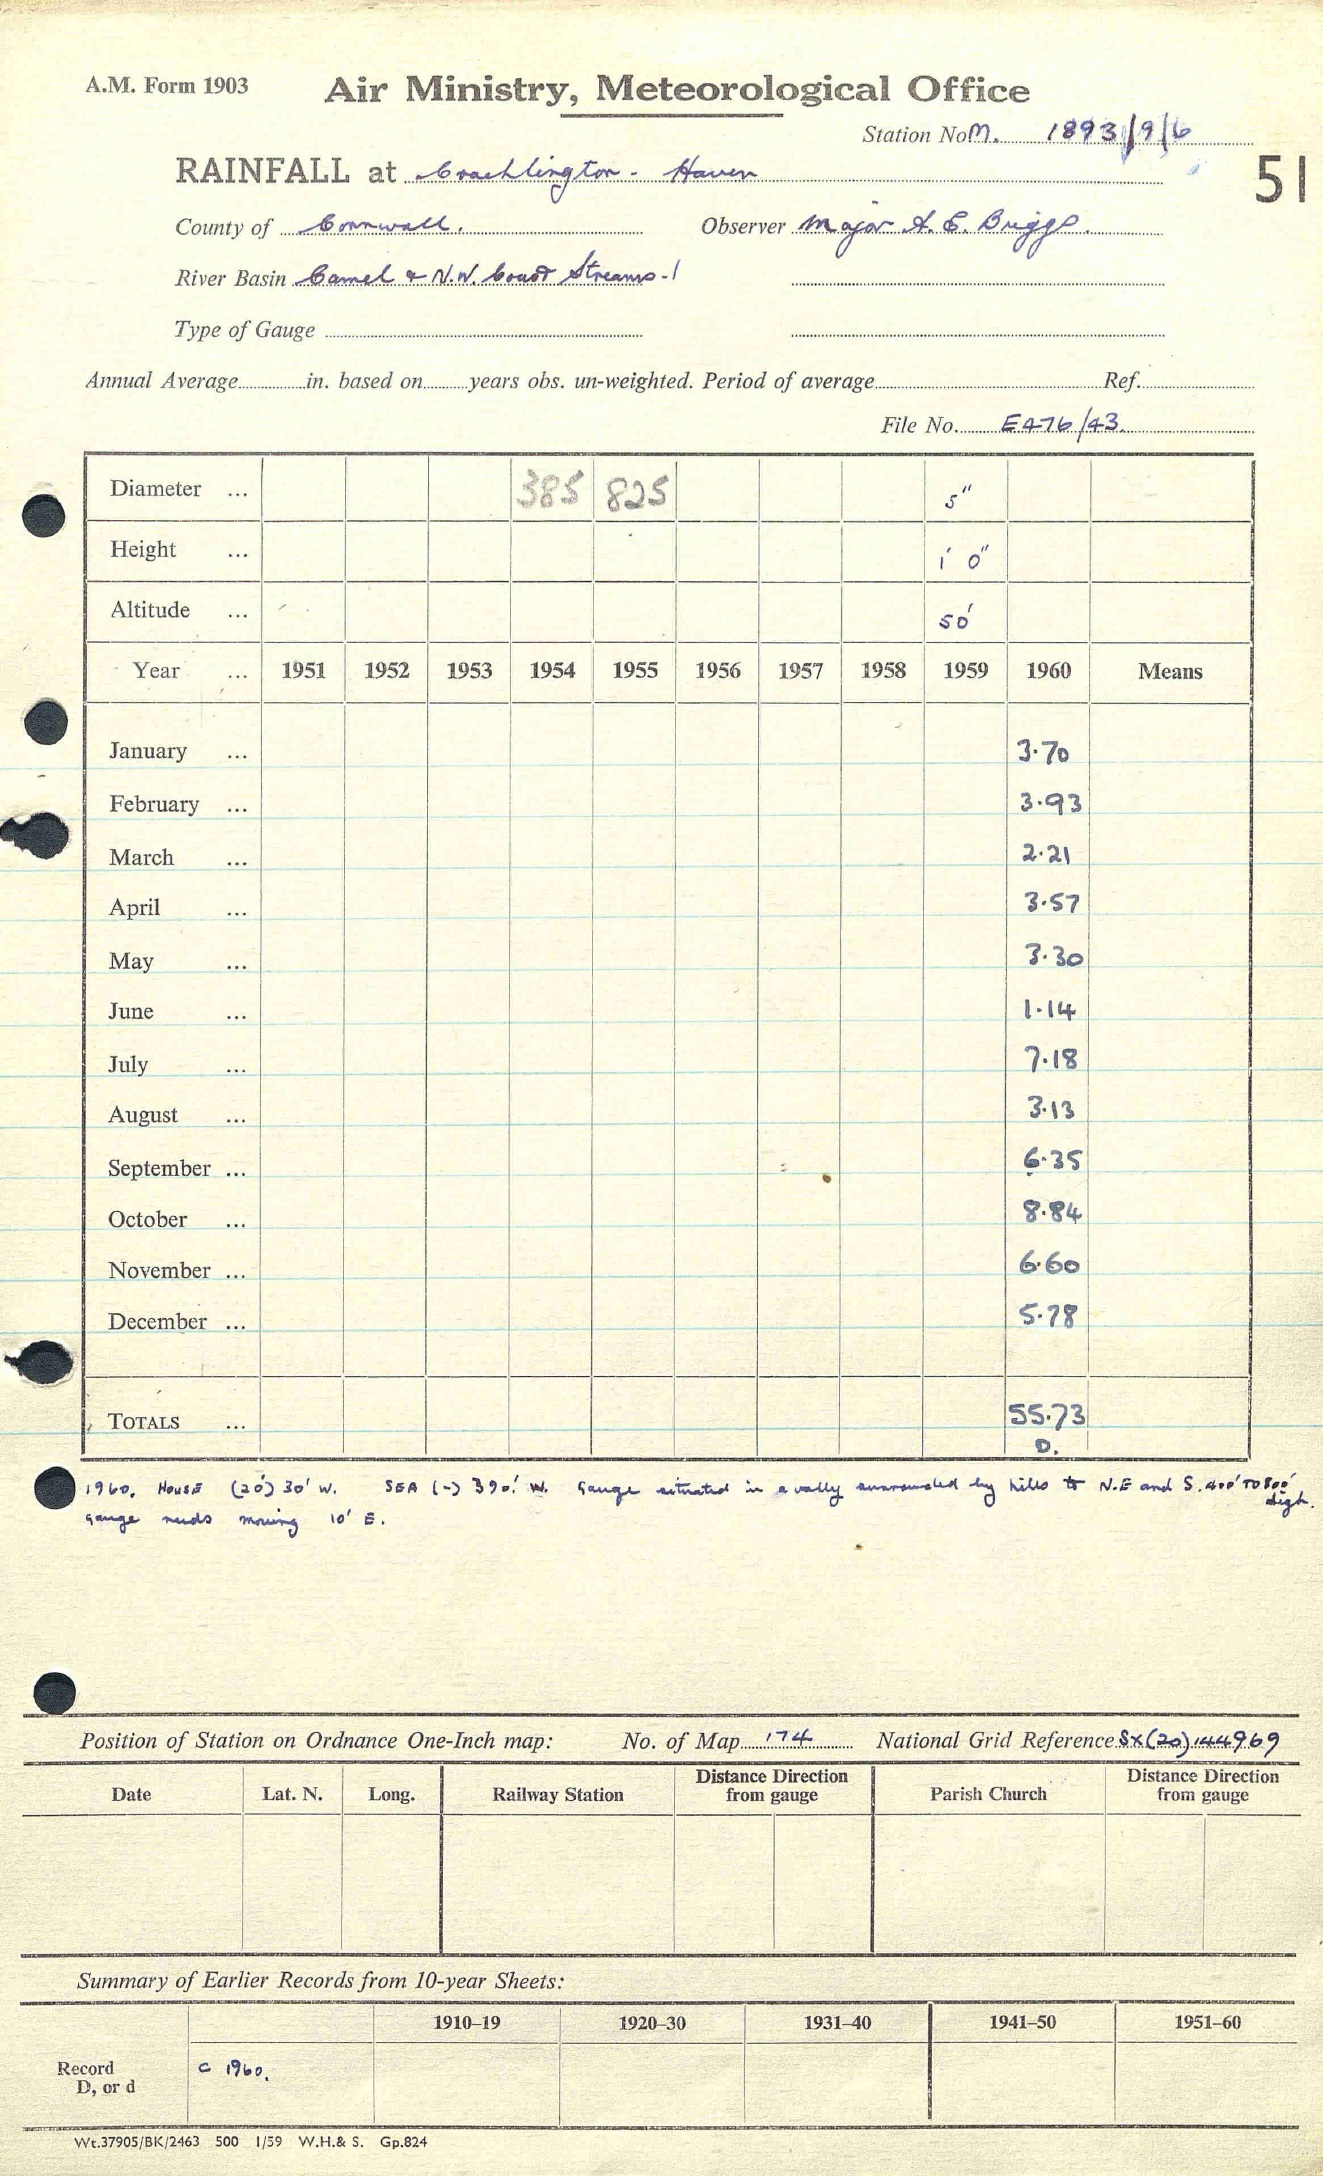 A.M. Form 1903 Air Ministry, Meteorological Office
Station No M. 1893/9/6
RAINFALL at Crachlington - Haven 51
County of Cornwall. Observer Major A. E. Briggs.
River Basin Camel & N.W. Coast Streams - 1
Type of Gauge
Annual Average in. based on years obs. un-weighted. Period of average Ref.
File No. E476/43.
Diameter ... 385 825 5"
Height ... 1' 0"
Altitude ... 50'
Year ... 1951 1952 1953 1954 1955 1956 1957 1958 1959 1960 Means
January ... 3.70
February ... 3.93
March ... 2.21
April ... 3.57
May ... 3.30
June ... 1.14
July ... 7.18
August ... 3.13
September ... 6.35
October ... 8.84
November ... 6.60
December ... 5.78
TOTALS ... 55.73
D.
1960. HOUSE (20') 30' W. SEA (-) 390' W. Gauge situated in a vally surrounded by hills to N.E and S. 400' TO 800' high.
Gauge needs moving 10' E.
Position of Station on Ordnance One-Inch map: No. of Map 174 National Grid Reference SX(20)144969
Date Lat. N. Long. Railway Station Distance Direction from gauge Parish Church Distance Direction from gauge
Summary of Earlier Records from 10-year Sheets:
1910–19 1920–30 1931–40 1941–50 1951–60
Record D, or d C 1960.
Wt.37905/BK/2463 500 1/59 W.H.& S. Gp.824